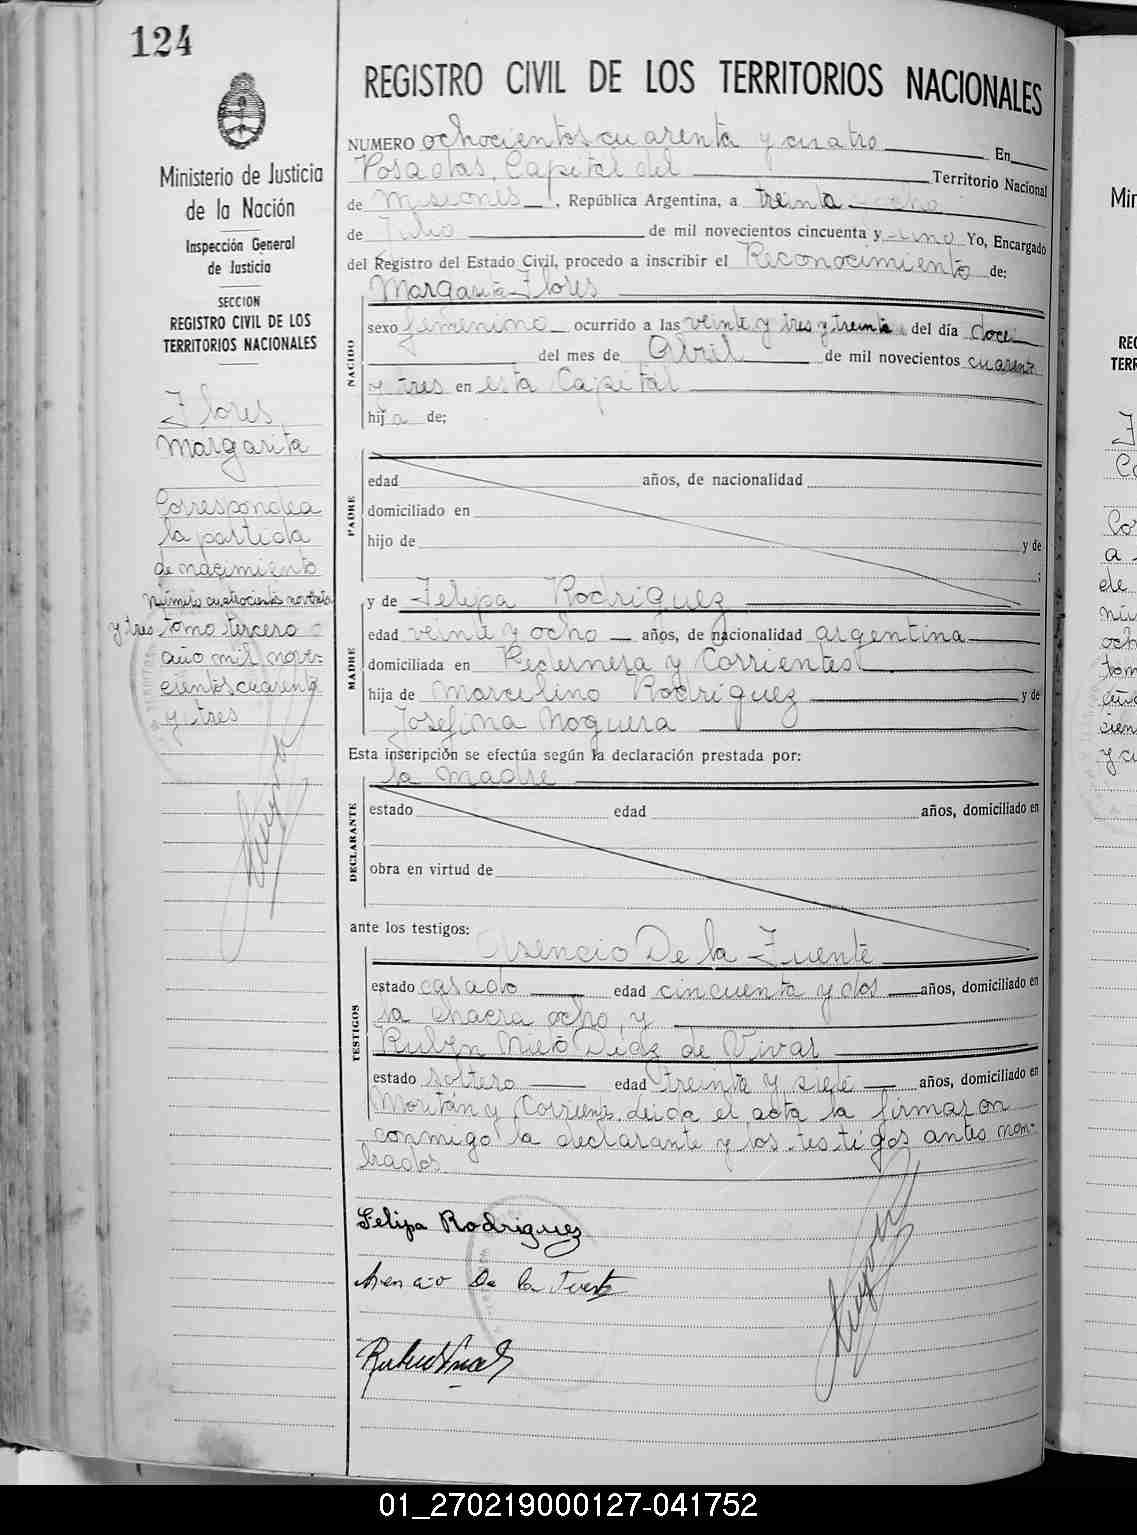 124
Ministerio de Justicia
de la Nación
Inspección General
de Justicia
SECCION
REGISTRO CIVIL DE LOS
TERRITORIOS NACIONALES
Flores
Margarita
Corresponde a
la partida
de nacimiento
número cuatrocientos noventa
y tres tomo tercero
año mil nove-
cientos cuarenta
y tres
REGISTRO CIVIL DE LOS TERRITORIOS NACIONALES
NUMERO ochocientos cuarenta y cuatro En
Posadas, Capital del Territorio Nacional
de Misiones, República Argentina, a treinta
de Julio de mil novecientos cincuenta y uno Yo, Encargado
del Registro del Estado Civil, procedo a inscribir el Reconocimiento de:
Margarita Flores
NACIDO
sexo femenino ocurrido a las veinte y tres y treinta del día doce
del mes de Abril de mil novecientos cuarenta
y tres en esta Capital
hija de;
PADRE
edad años, de nacionalidad
domiciliado en
hijo de y de
;
y de Felipa Rodriguez
MADRE
edad veinte y ocho años, de nacionalidad argentina
domiciliada en Pedernera y Corrientes
hija de Marcelino Rodriguez y de
Josefina Noguera
Esta inscripción se efectúa según la declaración prestada por:
la madre
DECLARANTE
estado edad años, domiciliado en
obra en virtud de
ante los testigos:
Asencio De la Fuente
TESTIGOS
estado casado edad cincuenta y dos años, domiciliado en
la chacra ocho, y
Rubén Nieto Diaz de Vivar
estado soltero edad treinta y siete años, domiciliado en
y leida el acta la firmaron
conmigo la declarante y los testigos antes nom-
brados
Felipa Rodriguez
Asencio De la Fuente
Min
REG
TERR
01_270219000127-041752